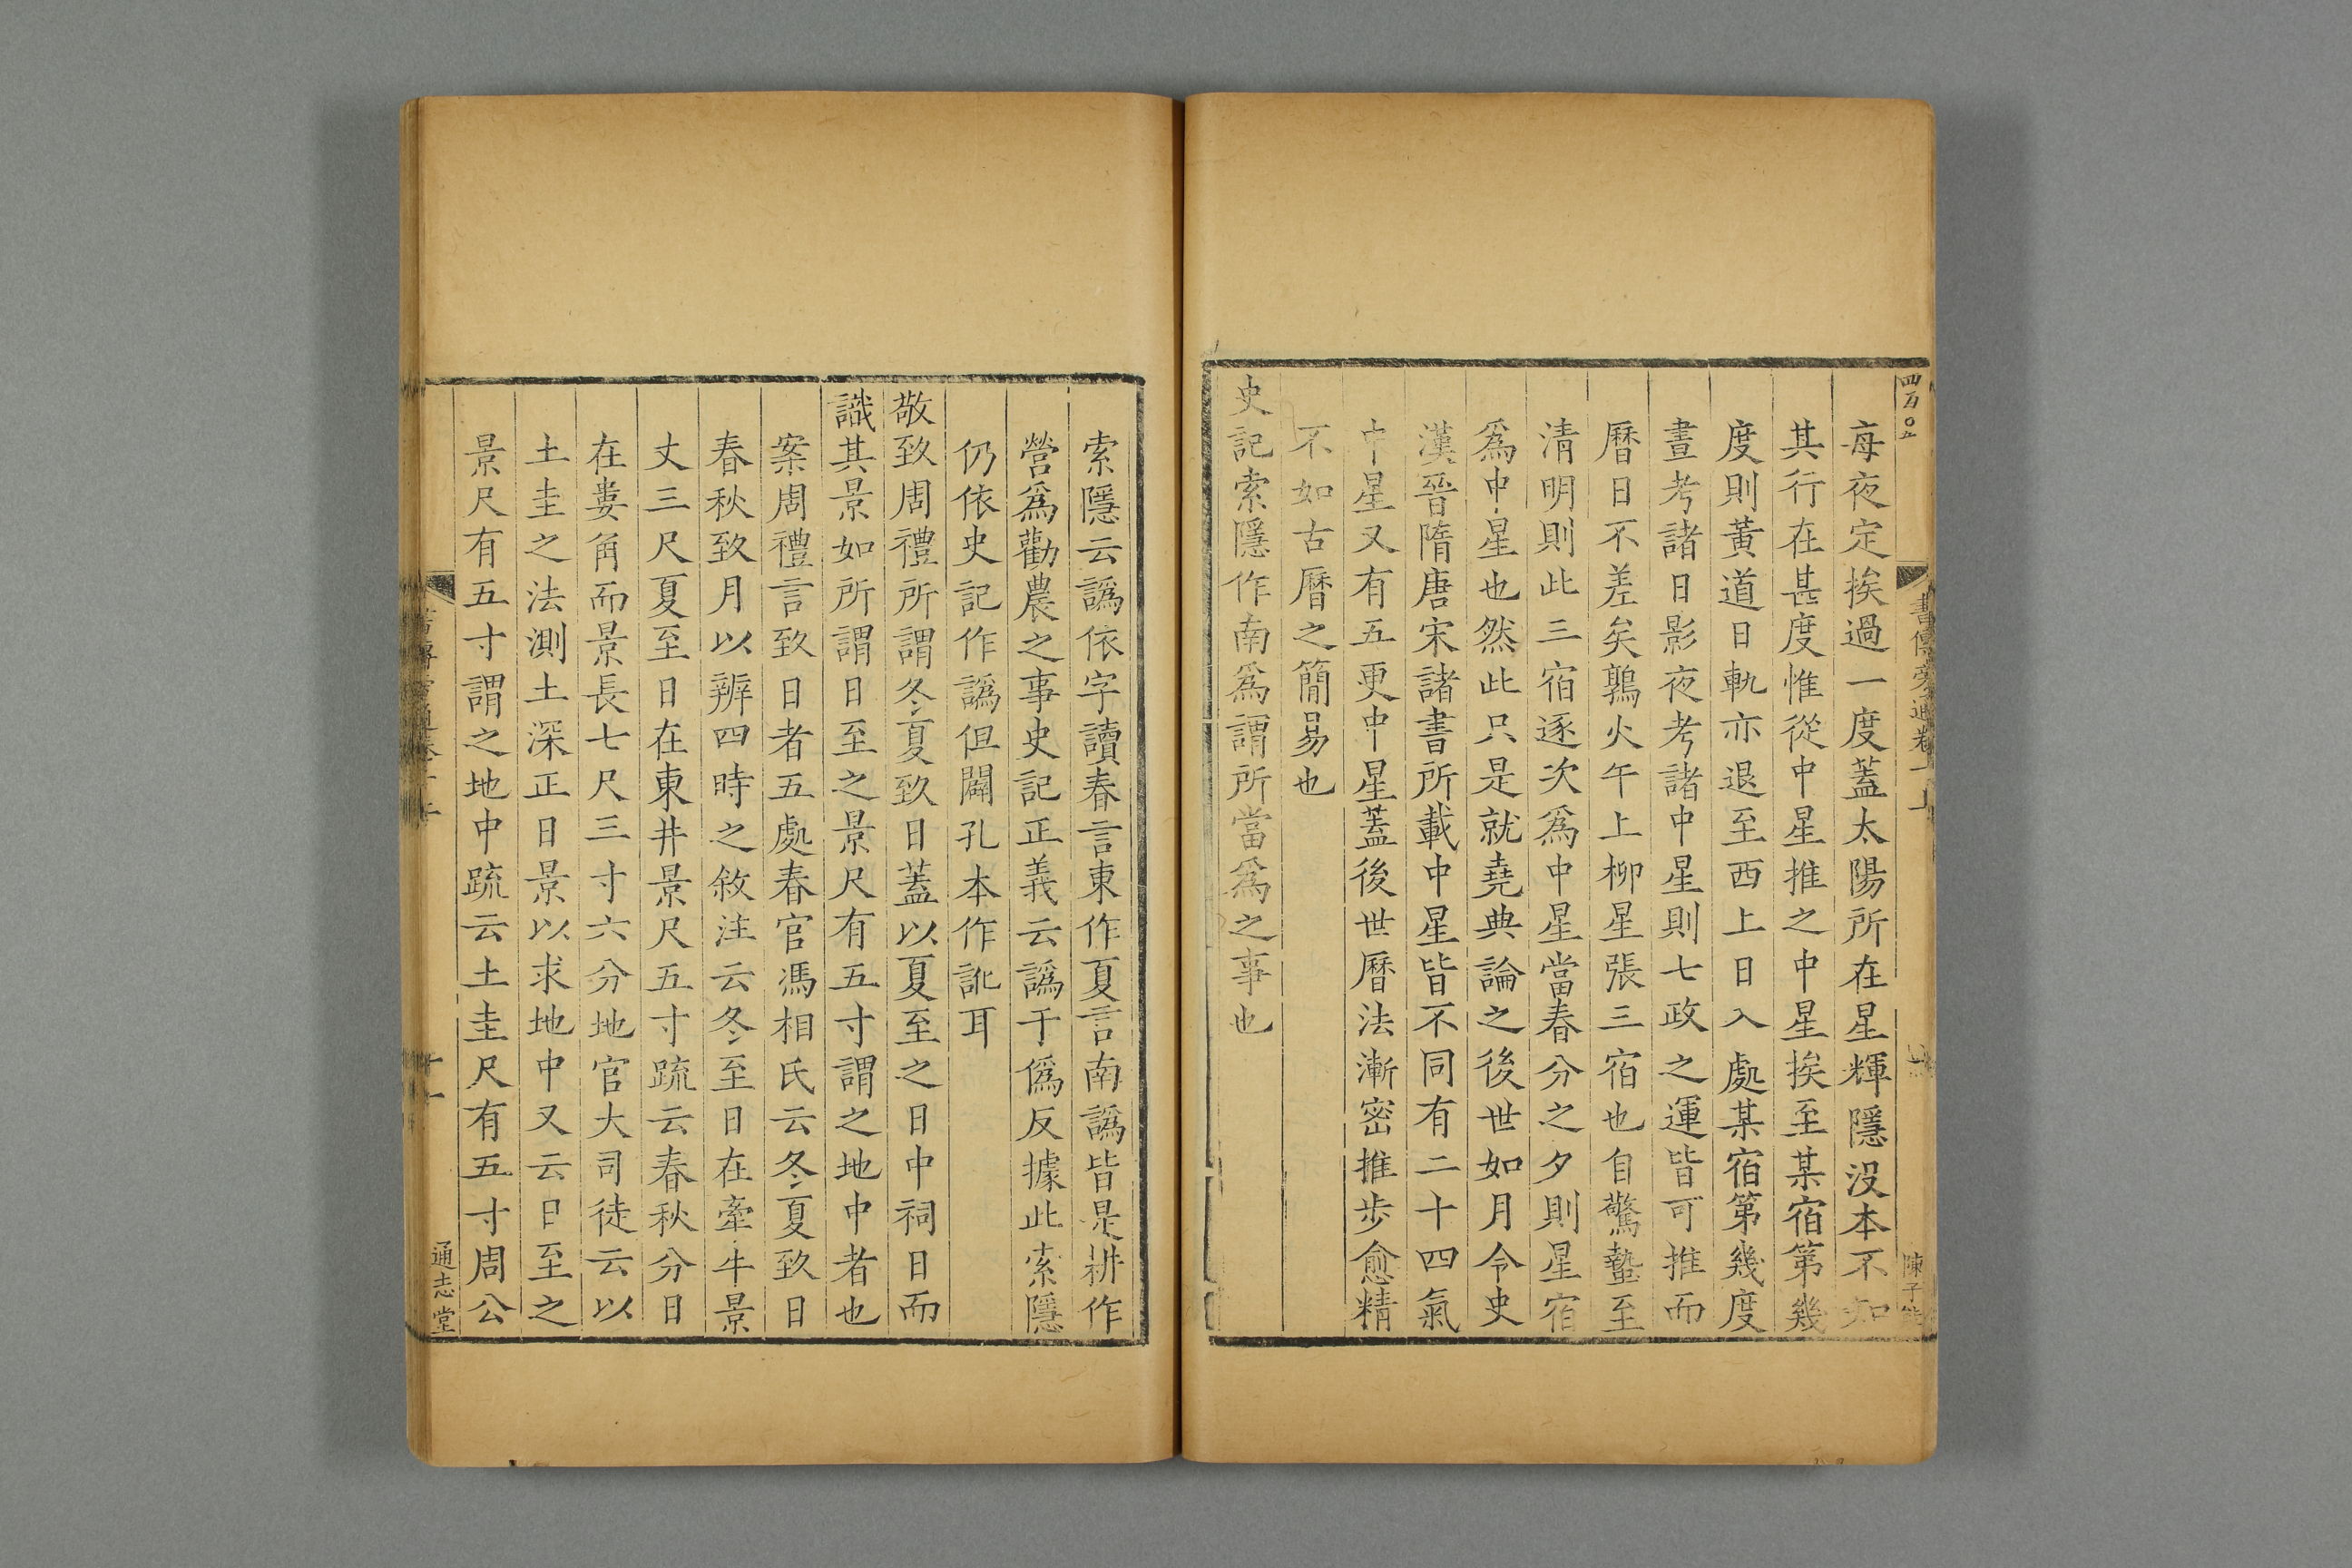 四百〇五
書傳旁通卷一上
陳子能
每夜定挨過一度蓋太陽所在星輝隱沒本不知
其行在甚度惟從中星推之中星挨至某宿第幾
度則黃道日軌亦退至西上日入處某宿第幾度
晝考諸日影夜考諸中星則七政之運皆可推而
曆日不差矣鶉火午上柳星張三宿也自驚蟄至
清明則此三宿逐次爲中星當春分之夕則星宿
爲中星也然此只是就堯典論之後世如月令史
漢晉隋唐宋諸書所載中星皆不同有二十四氣
中星又有五更中星蓋後世曆法漸密推步愈精
不如古曆之簡易也
史記索隱作南爲謂所當爲之事也
索隱云譌依字讀春言東作夏言南譌皆是耕作
營爲勸農之事史記正義云譌于僞反據此索隱
仍依史記作譌但闢孔本作訛耳
敬致周禮所謂冬夏致日蓋以夏至之日中祠日而
識其景如所謂日至之景尺有五寸謂之地中者也
案周禮言致日者五處春官馮相氏云冬夏致日
春秋致月以辨四時之敘注云冬至日在牽牛景
丈三尺夏至日在東井景尺五寸疏云春秋分日
在婁角而景長七尺三寸六分地官大司徒云以
土圭之法測土深正日景以求地中又云日至之
景尺有五寸謂之地中疏云土圭尺有五寸周公
十一
通志堂